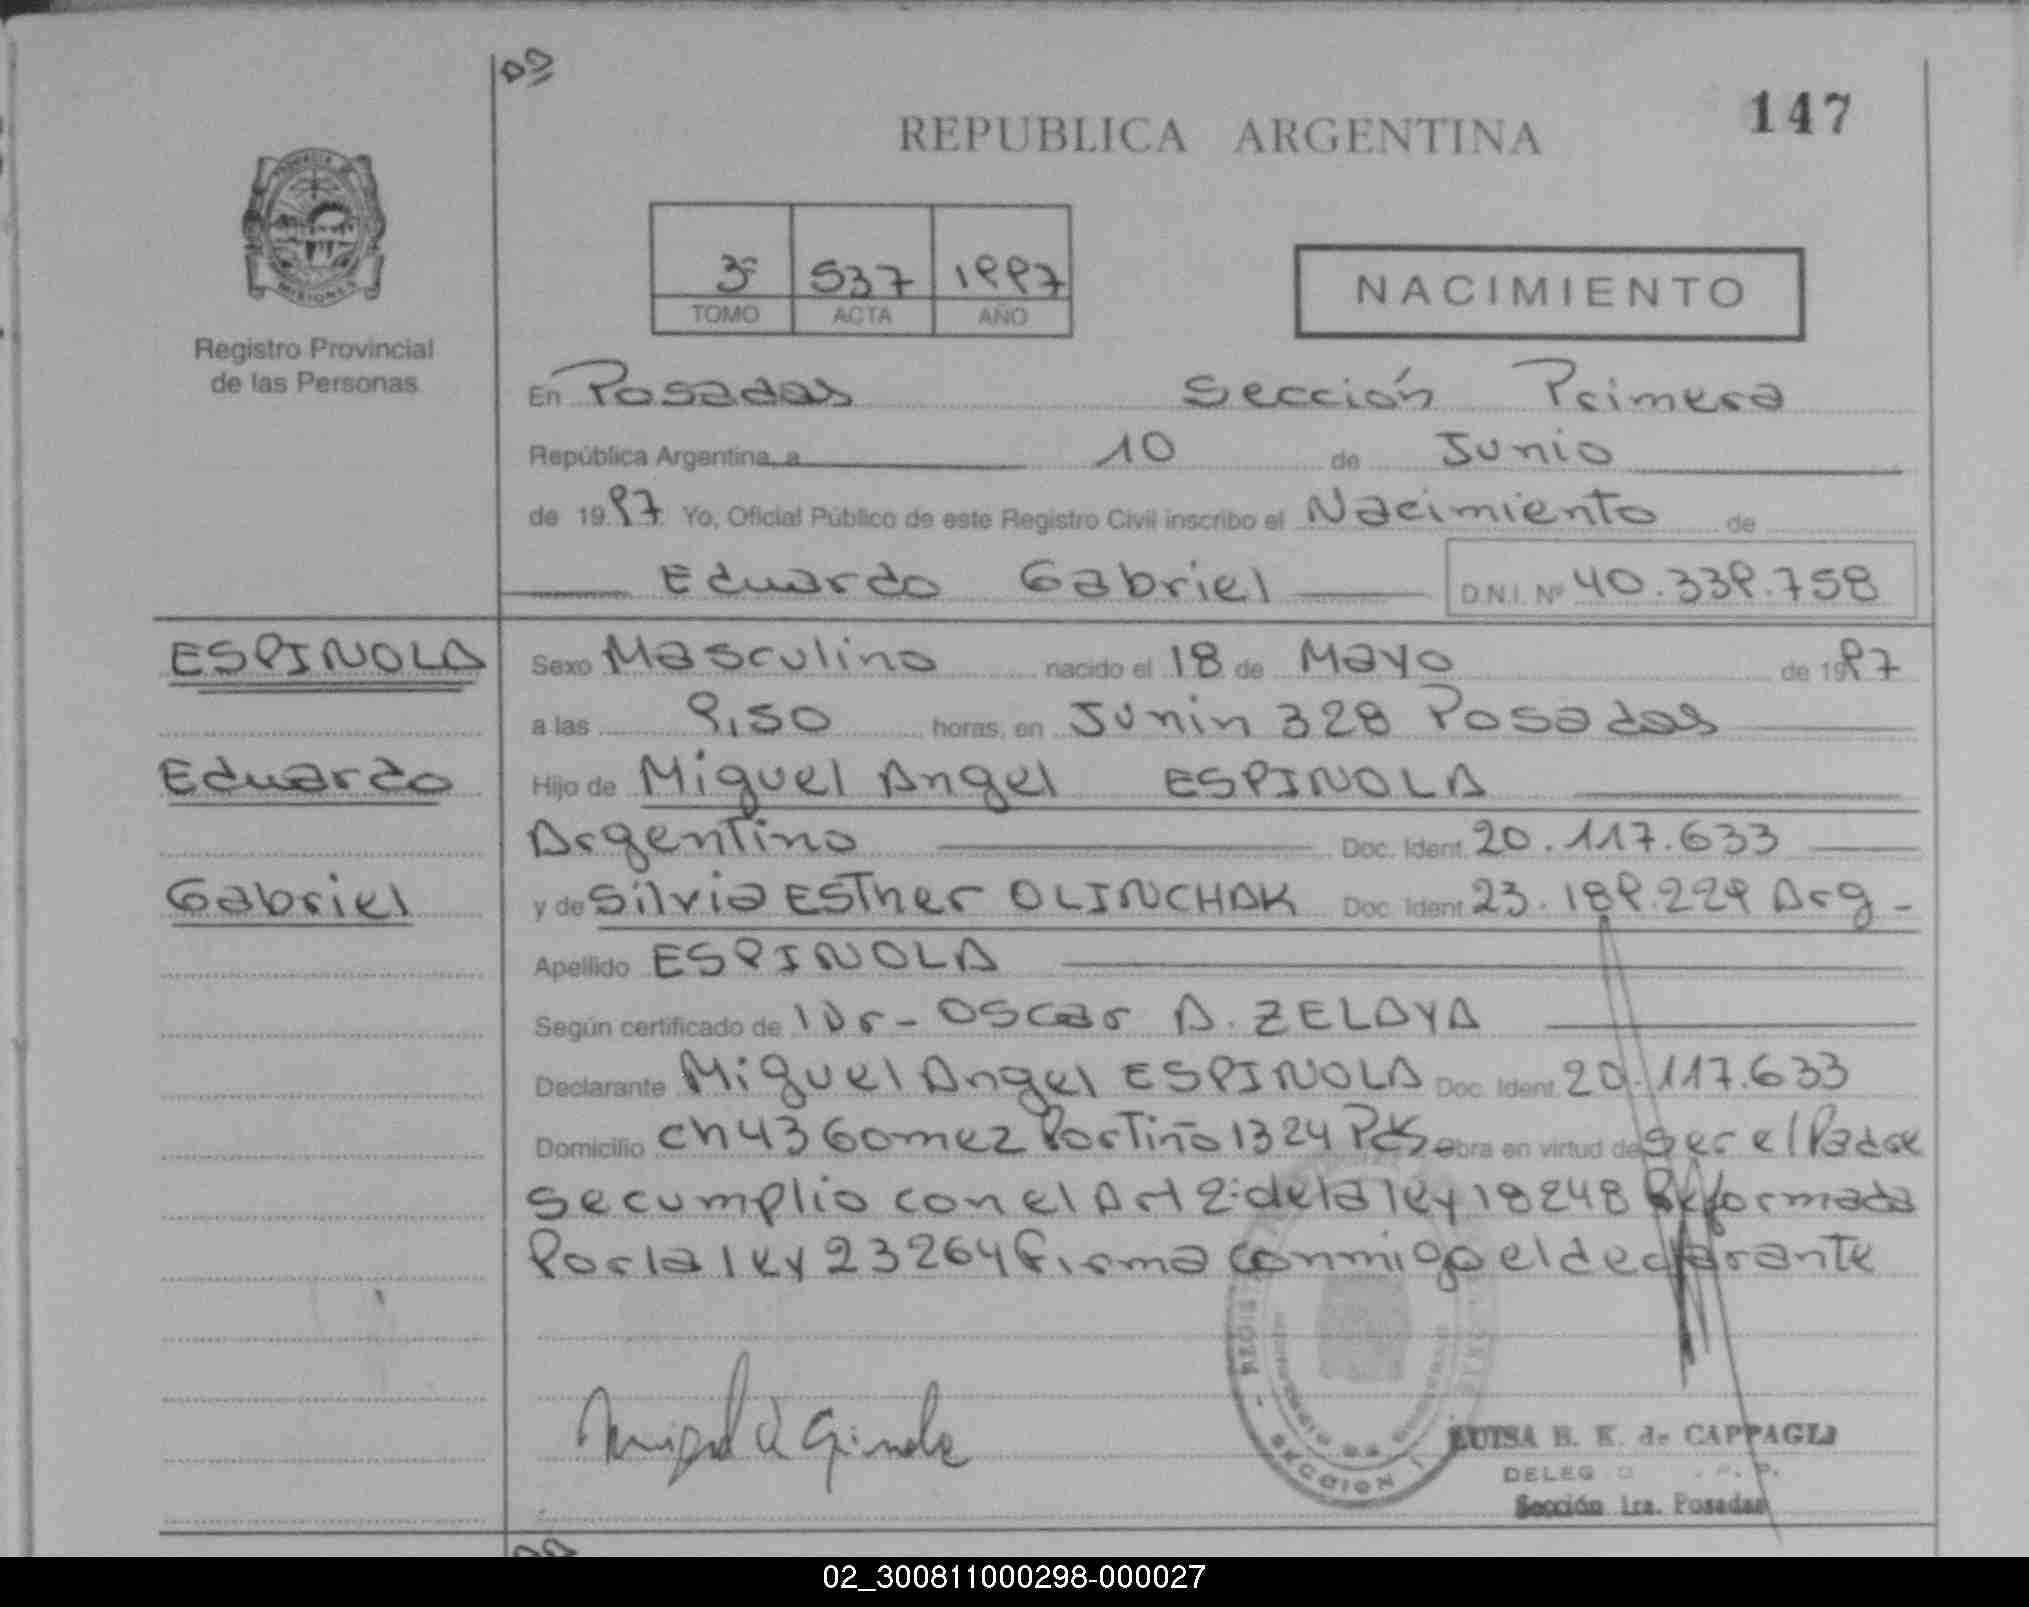 REPUBLICA ARGENTINA
147
PROVINCIA DE MISIONES
Registro Provincial
de las Personas
3º 537 1997
TOMO ACTA AÑO
NACIMIENTO
En Posadas Sección Primera
República Argentina, a 10 de Junio
de 1997 Yo, Oficial Público de este Registro Civil inscribo el Nacimiento de
Eduardo Gabriel D.N.I. Nº 40.339.758
ESPINOLA
Eduardo
Gabriel
Sexo Masculino nacido el 18 de Mayo de 1997
a las 9,50 horas, en Junin 328 Posadas
Hijo de Miguel Angel ESPINOLA
Argentino Doc. Ident. 20.117.633
y de Silvia ESTher OLINCHAK Doc. Ident. 23.189.229 Arg-
Apellido ESPINOLA
Según certificado de Dr- Oscar A. ZELAYA
Declarante Miguel Angel ESPINOLA Doc. Ident. 20.117.633
Domicilio ch 43 Gomez Portiño 1324 Pdas obra en virtud de ser el Padre
se cumplio con el Art 2º de la ley 18248 Reformada
Por la ley 23264 firma conmigo el declarante
SECCION 1
LUISA B. K. de CAPPAGLI
Sección 1ra. Posadas
02_300811000298-000027